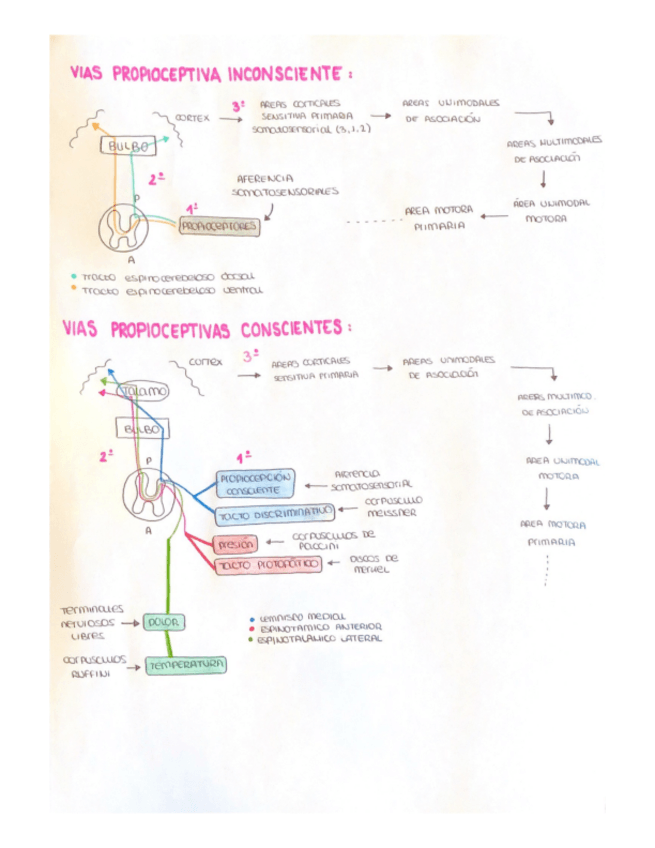 VIAS PROPIOCEPTIVA INCONSCIENTE:
CORTEX
3º
AREAS CORTICALES
SENSITIVA PRIMARIA
SOMATOSENSORIAL (3,1,2)
AREAS UNIMODALES
DE ASOCIACIÓN
AREAS MULTIMODALES
DE ASOCIACIÓN
ÁREA UNIMODAL
MOTORA
AREA MOTORA
PRIMARIA
BULBO
2º
AFERENCIA
SOMATOSENSORIALES
P
1º
PROPIOCEPTORES
A
TRACTO ESPINOCEREBELOSO DORSAL
TRACTO ESPINOCEREBELOSO VENTRAL
VIAS PROPIOCEPTIVAS CONSCIENTES:
CORTEX
3º
AREAS CORTICALES
SENSITIVA PRIMARIA
AREAS UNIMODALES
DE ASOCIACIÓN
AREAS MULTIMOD.
DE ASOCIACIÓN
AREA UNIMODAL
MOTORA
AREA MOTORA
PRIMARIA
TÁLAMO
BULBO
2º
P
A
1º
PROPIOCEPCIÓN
CONSCIENTE
AFERENCIA
SOMATOSENSORIAL
TACTO DISCRIMINATIVO
CORPUSCULO
MEISSNER
PRESIÓN
CORPUSCULOS DE
PACCINI
TACTO PROTOPÁTICO
DISCOS DE
MERKEL
TERMINALES
NERVIOSOS
LIBRES
DOLOR
CORPUSCULOS
RUFFINI
TEMPERATURA
LEMNISCO MEDIAL
ESPINOTAMICO ANTERIOR
ESPINOTALAMICO LATERAL